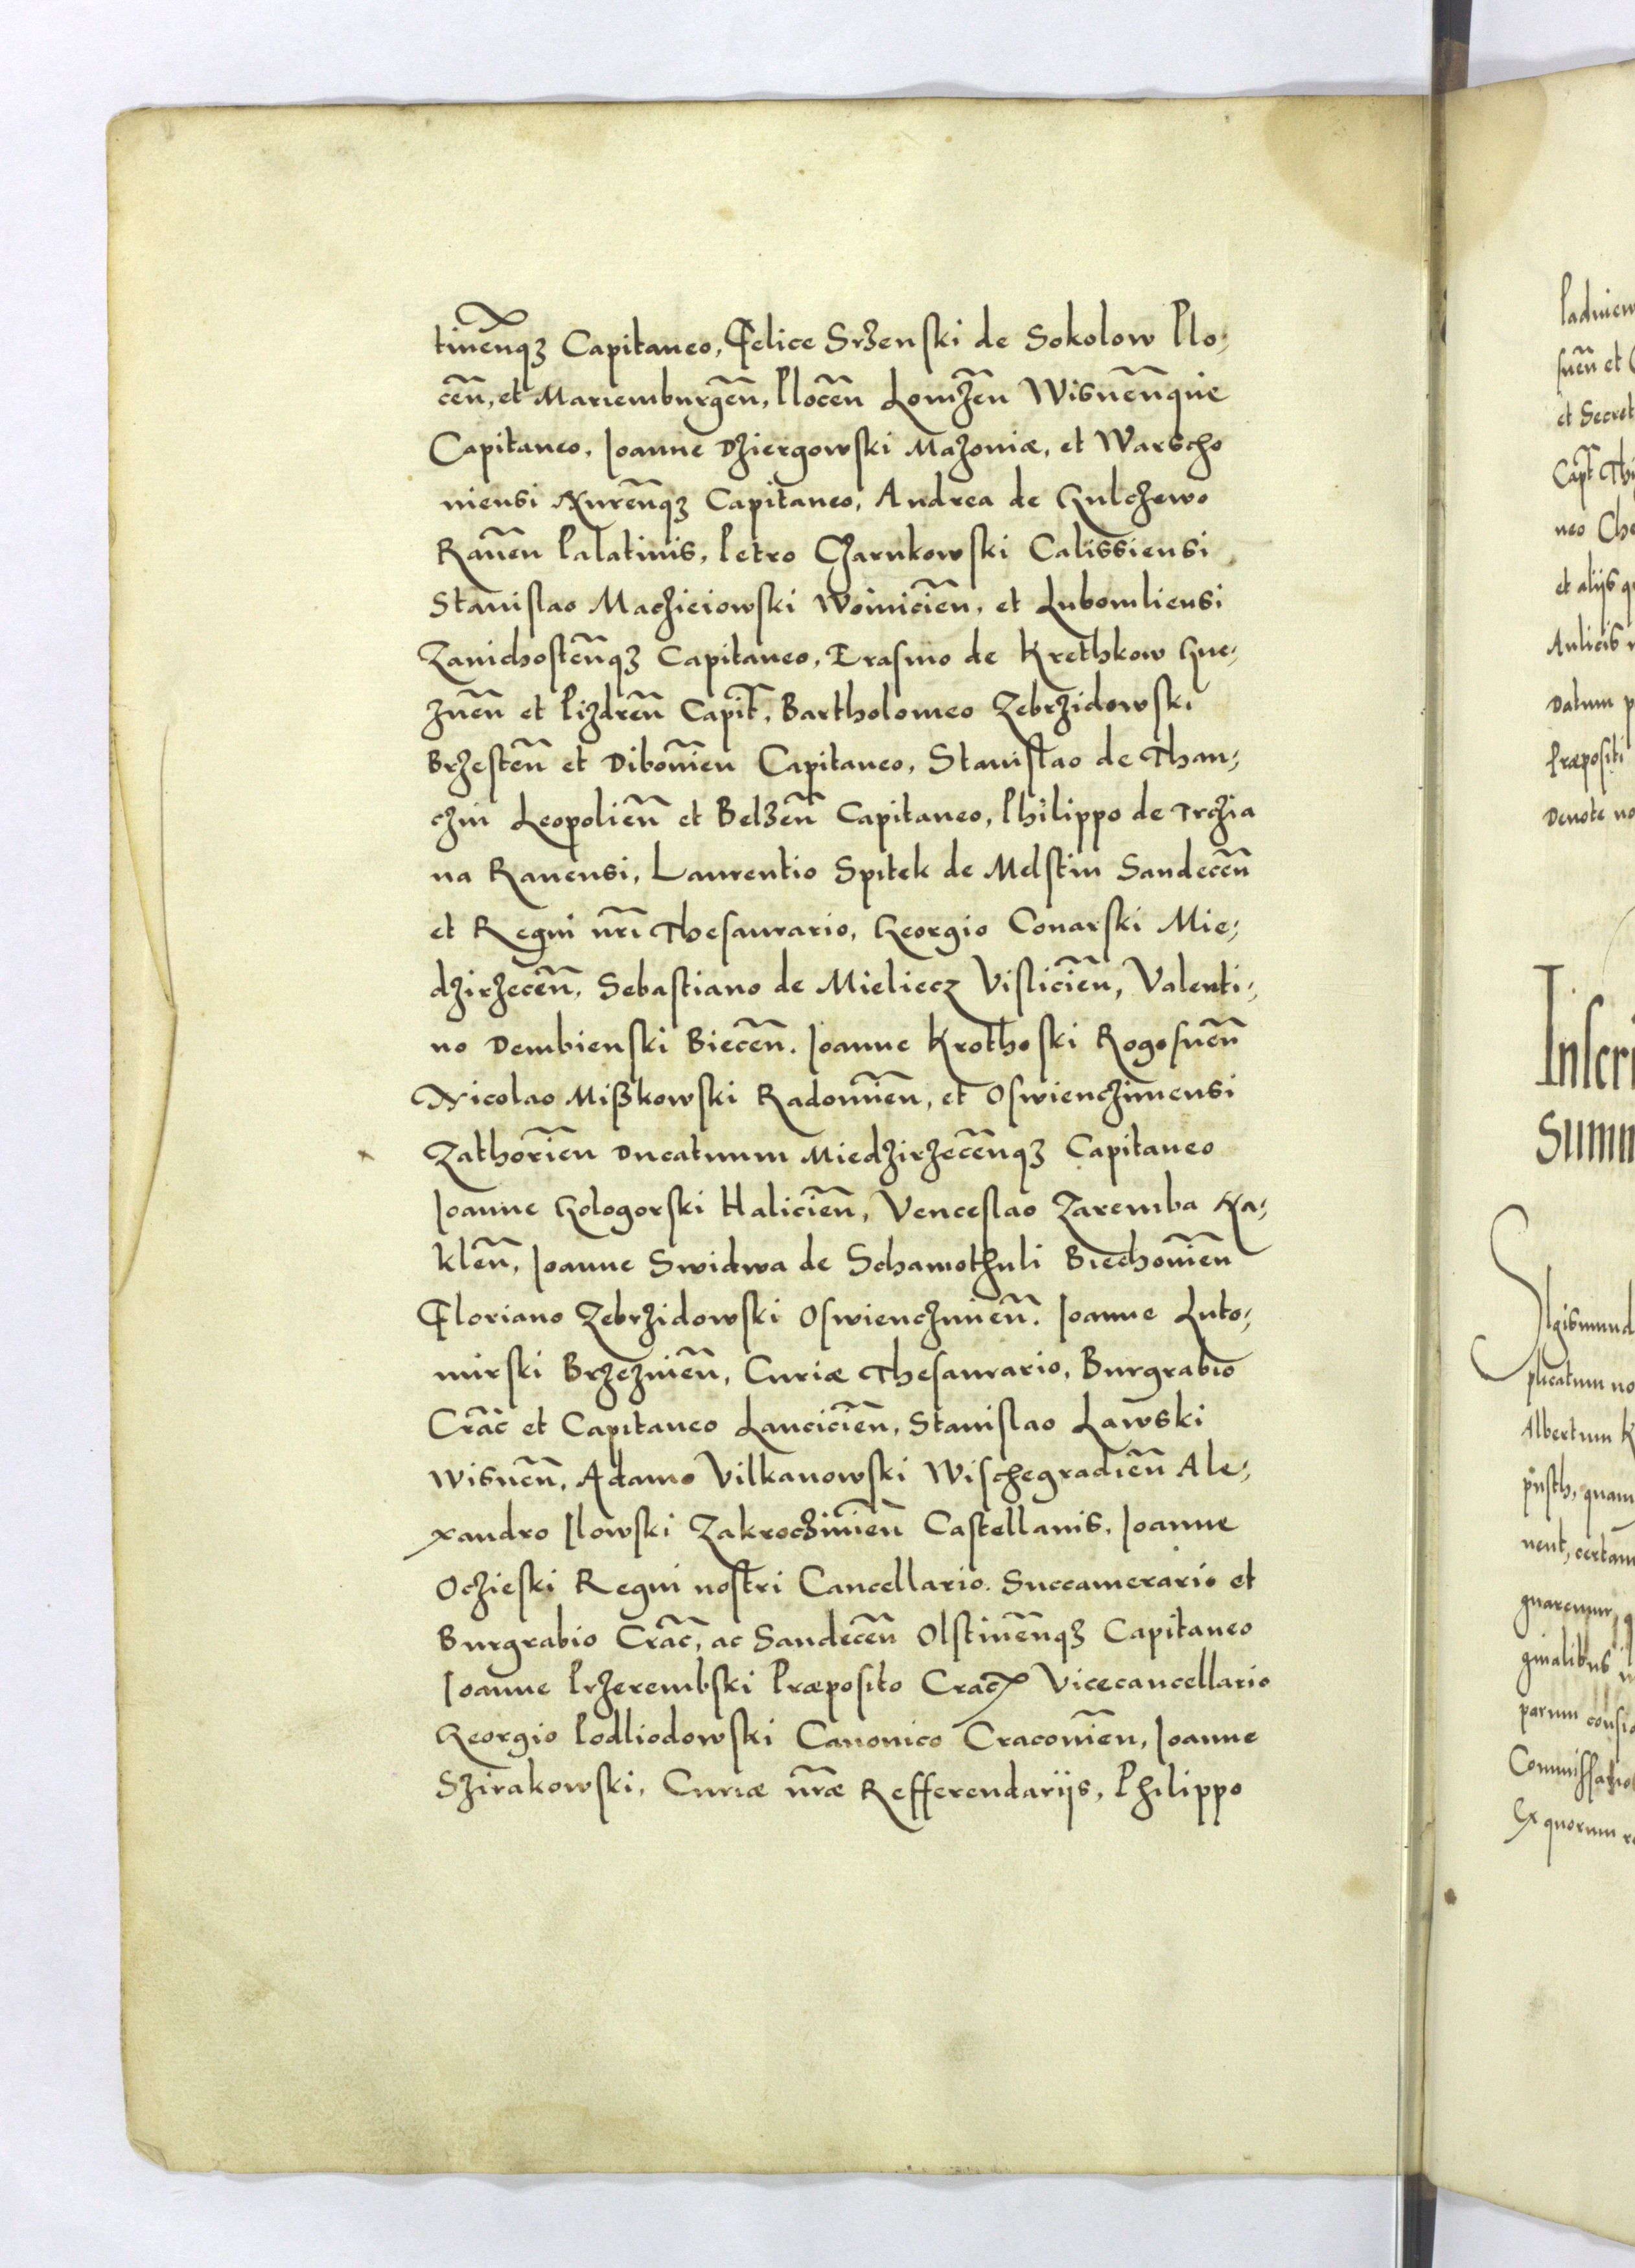 tinen̄qȝ Capitaneo, Felice Srzenski de Sokolow Plo-
cen̄, et Mariemburgen̄, Plocen̄ Lomzen̄ Wisnen̄que
Capitaneo, Joanne Dziergowski Mazoniæ, et Warscho
niensi Nuren̄qȝ Capitaneo, Andrea de Gulczewo
Raven̄ Palatinis, Petro Czarnkowski Calissiensi
Stanislao Macziciowski Woinicien̄, et Lubomliensi
Zanichosten̄qȝ Capitaneo, Erasmo de Krethkow Gne-
znen̄ et Pizdren̄ Capit̄, Bartholomeo Zebrzidowski
Brzesten̄ et Dibouien̄ Capitaneo, Stanislao de Than-
czin Leopolien̄ et Belzen̄ Capitaneo, Philippo de Trczia
na Rauensi, Laurentio Spitek de Melstin Sandecen̄
et Regni nr̄i Thesaurario, Georgio Conarski Mie-
dzirzecen̄, Sebastiano de Mieliecz Vislicien̄, Valenti-
no Dembienski Biecen̄. Joanne Krothoski Rogosnen̄
Nicolao Mißkowski Radomien̄, et Oswienczimensi
Zathorien̄ Ducatuum Miedzirzecen̄qȝ Capitaneo
Joanne Gologorski Halicien̄, Venceslao Zaremba Na-
klen̄, Joanne Swidwa de Schamothuli Biechouien̄
Floriano Zebrzidowski Oswienczimen̄. Joanne Luto-
mirski Brzezinen̄, Curiæ Thesaurario, Burgrabio
Crac̄ et Capitaneo Lancicien̄, Stanislao Lawski
Wisnen̄, Adamo Vilkanowski Wischegradien̄ Ale-
xandro Ilowski Zakrocziminen̄ Castellanis, Joanne
Oczieski Regni nostri Cancellario. Succamerario et
Burgrabio Crac̄, ac Sandecen̄ Olstinen̄qȝ Capitaneo
Joanne Przerembski Præposito Crac̄ Vicecancellario
Georgio Podliodowski Canonico Cracouien̄, Joanne
Szirakowski, Curiæ nr̄æ Refferendarijs, Philippo
snen̄ et
et Secret
neo Che
et alijs q
Aulicis
Datum p
Præpositi
Deuote no
Inscri
Summ
Sigismund
plicatum no
Albertum K
quam
nent, certam
ginalibus
parum consi
Ex quorum